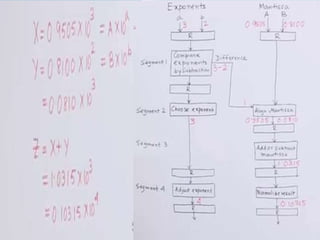 X=0.9505×10^3 = A×10^a
Y=0.8100×10^2 = B×10^b
=0.0810×10^3
Z=X+Y
=1.0315×10^3
=0.10315×10^4
Exponents
a b
3 2
R
Segment 1
Compare
exponents
by Subtraction
Difference
3-2
R
Segment 2
Choose exponent
3
1
Segment 3
R
Segment 4
Adjust exponent
4
R
Mantissa
A B
0.9505 0.8100
R
R
Align Mantissa
0.9505 0.0810
R
Add or subtract
mantissa
1.0315
R
Normalise result
0.10315
R